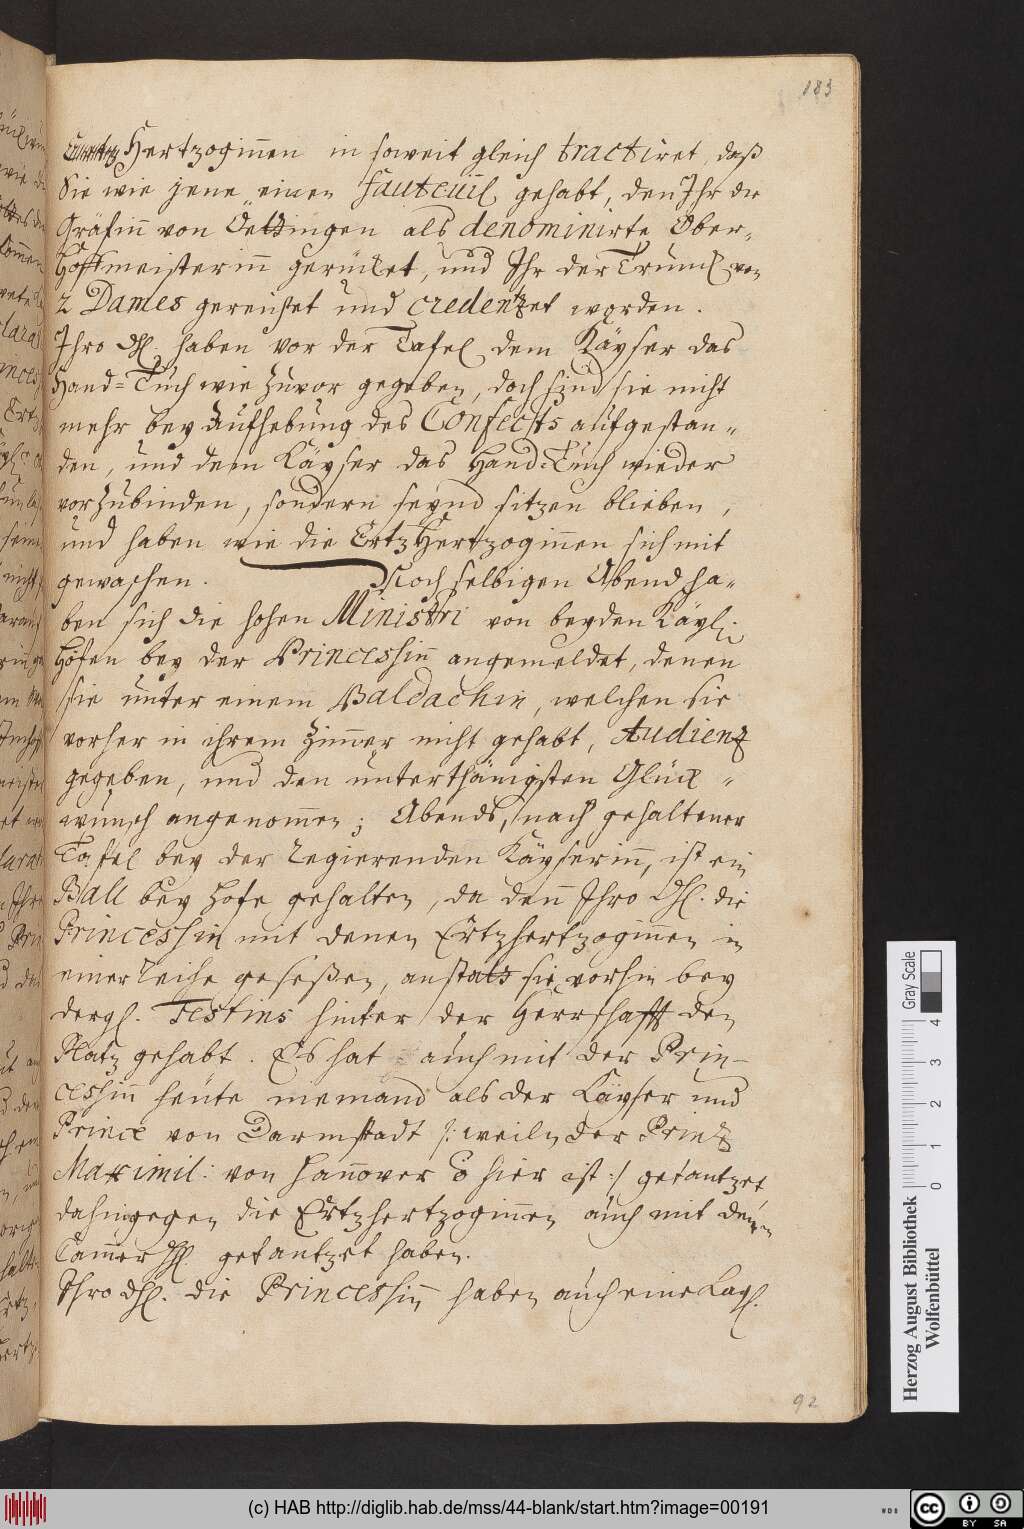 183
Hertzoginnen in soweit gleich tractiret, daß
Sie wie jene einen fauteuil gehabt, den Ihr die
Gräfinn von Öettingen als denominirte Ober-
Hoffmeisterinn gerücket, und Ihr der Trunck von
2 Dames gereichet und credentzet worden.
Ihro Dhl. haben vor der Tafel dem Käyser das
Hand-Tuch wie zuvor gegeben, doch sind sie nicht
mehr bey Aufhebung des Confects aufgestan-
den, und dem Käyser das Hand-Tuch wieder
vorzubinden, sondern seynd sitzen blieben,
und haben wie die ErtzHertzoginnen sich mit
gewaschen. Noch selbigen Abend ha-
ben sich die hohen Ministri von beyden Käyl.
Höfen bey der Princeshinn angemeldet, denen
sie unter einem Baldachin, welchen sie
vorher in ihrem Zimmer nicht gehabt, Audientz
gegeben, und den unterthänigsten Glück-
wunsch angenommen; Abends, nach gehaltener
Tafel bey der regierenden Käyserinn, ist ein
Ball bey Hofe gehalten, da denn Ihro Dhl. die
Princeshin mit denen Ertzhertzoginnen in
einer Reihe geseßen, anstatt sie vorhin bey
dergl. Festins hinter der Herrschafft den
Platz gehabt. Es hat auch mit der Prin-
ceshinn heute niemand als der Käyser und
Prince von Darmstadt /: weiln der Printz
Maximil: von Hannover hier ist :/ getantzet
dahingegen die Ertzhertzoginnen auch mit denen
Cammer getantzet haben.
Ihro Dhl. die Princeshinn haben auch eine Kayl.
92
Herzog August Bibliothek
Wolfenbüttel
Gray Scale
0 1 2 3 4
(c) HAB http://diglib.hab.de/mss/44-blank/start.htm?image=00191
WDB
CC BY SA